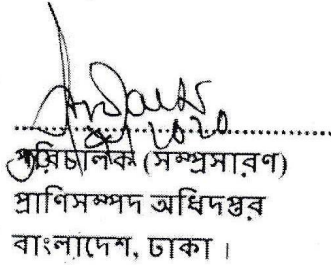 পরিচালক (সম্প্রসারণ)
প্রাণিসম্পদ অধিদপ্তর
বাংলাদেশ, ঢাকা।